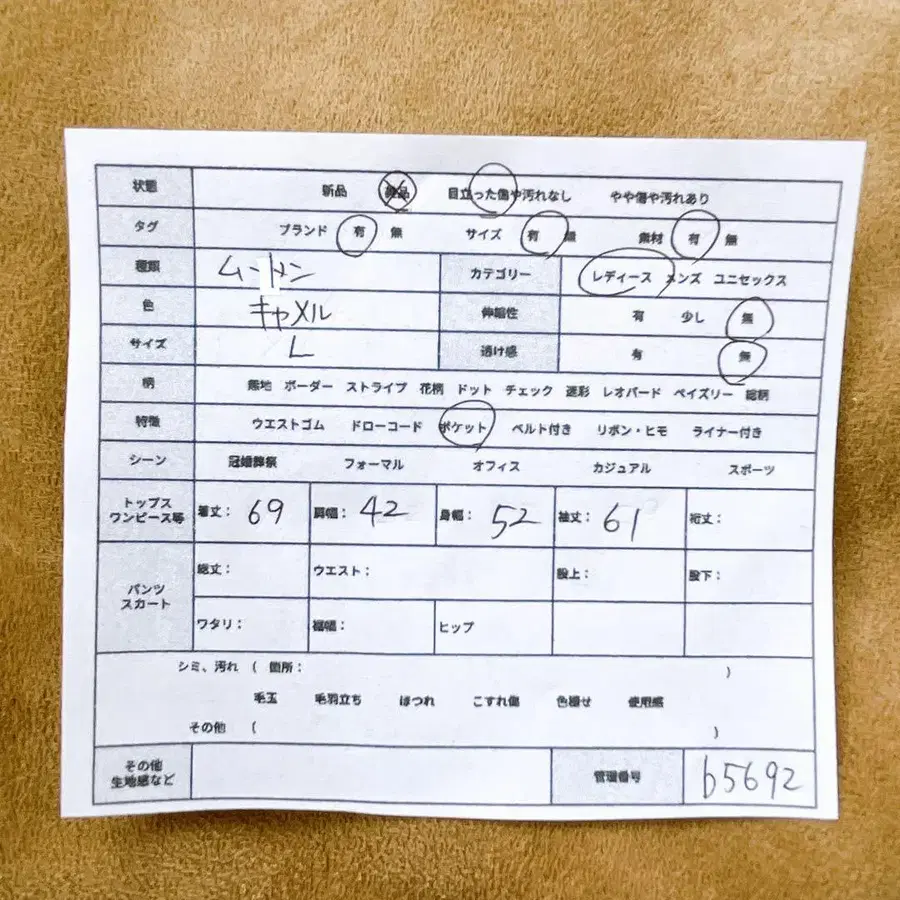 状態 新品 美品 目立った傷や汚れなし やや傷や汚れあり
タグ ブランド 有 無 サイズ 有 無 素材 有 無
種類 ムートン カテゴリー レディース メンズ ユニセックス
色 キャメル 伸縮性 有 少し 無
サイズ L 透け感 有 無
柄 無地 ボーダー ストライプ 花柄 ドット チェック 迷彩 レオパード ペイズリー 総柄
特徴 ウエストゴム ドローコード ポケット ベルト付き リボン・ヒモ ライナー付き
シーン 冠婚葬祭 フォーマル オフィス カジュアル スポーツ
トップス
ワンピース等 着丈: 69 肩幅: 42 身幅: 52 袖丈: 61 裄丈:
パンツ
スカート 総丈: ウエスト: 股上: 股下:
ワタリ: 裾幅: ヒップ
シミ、汚れ ( 箇所: )
毛玉 毛羽立ち ほつれ こすれ傷 色褪せ 使用感
その他 ( )
その他
生地感など 管理番号 b5692